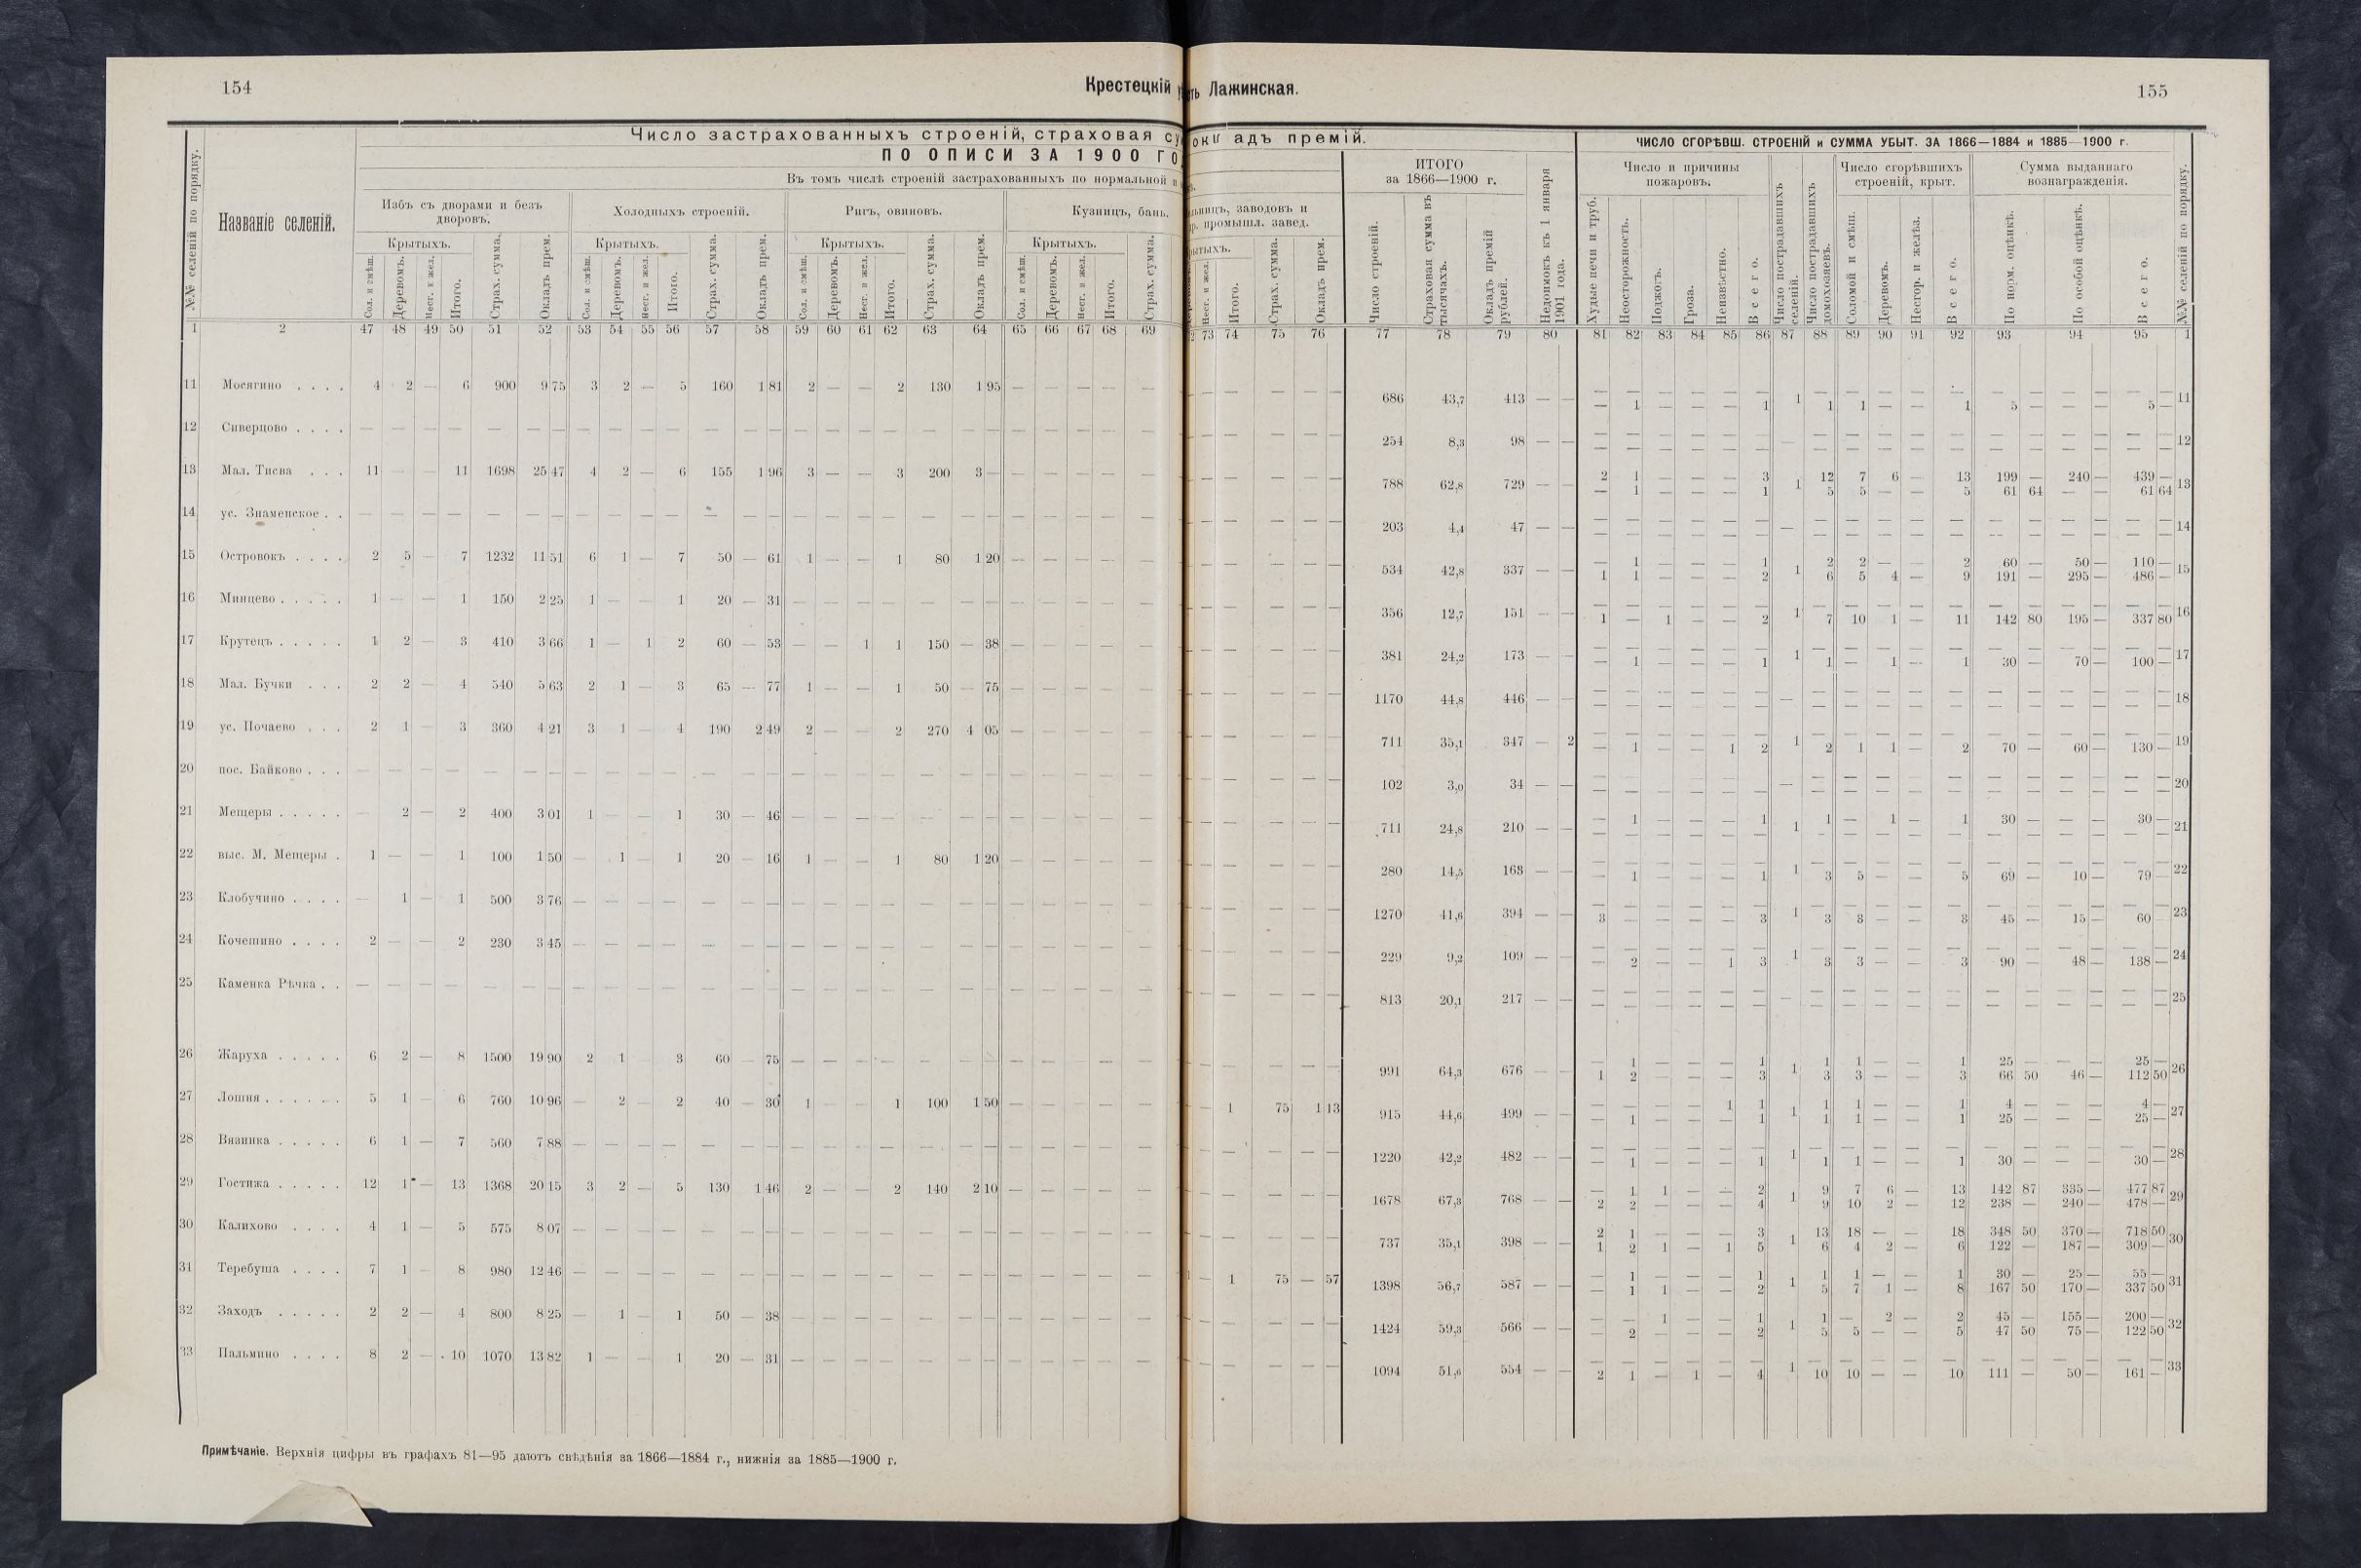 154
Крестецкій
ть Лажинская.
155
Число застрахованныхъ строеній, страховая су
адъ премій.
ПО ОПИСИ ЗА 1900 ГО
Въ томъ числѣ строеній застрахованныхъ по нормальной
№№ селеній по порядку.
Названіе селеній.
Избъ съ дворами и безъ дворовъ.
Холодныхъ строеній.
Ригъ, овиновъ.
Кузницъ, бань.
Крытыхъ. Страх. сумма. Окладъ прем.
Сол. и смѣш. Деревомъ. Несг. и жел. Итого.
Крытыхъ. Страх. сумма. Окладъ прем.
Сол. и смѣш. Деревомъ. Несг. и жел. Итого.
Крытыхъ. Страх. сумма. Окладъ прем.
Сол. и смѣш. Деревомъ. Несг. и жел. Итого.
Крытыхъ. Страх. сумма.
Сол. и смѣш. Деревомъ. Несг. и жел. Итого.
1 2 47 48 49 50 51 52 53 54 55 56 57 58 59 60 61 62 63 64 65 66 67 68 69
11 Мосягино . . . . 4 2 — 6 900 9 75 3 2 — 5 160 1 81 2 — — 2 130 1 95 — — — — —
12 Сиверцово . . . . — — — — — — — — — — — — — — — — — — — — — — —
13 Мал. Тисва . . . 11 — — 11 1698 25 47 4 2 — 6 155 1 96 3 — — 3 200 3 — — — — — —
14 ус. Знаменское . . — — — — — — — — — — — — — — — — — — — — — — —
15 Островокъ . . . . 2 5 — 7 1232 11 51 6 1 — 7 50 — 61 1 — — 1 80 1 20 — — — — —
16 Минцево . . . . . 1 — — 1 150 2 25 1 — — 1 20 — 31 — — — — — — — — — — —
17 Крутецъ . . . . . 1 2 — 3 410 3 66 1 — 1 2 60 — 53 — — 1 1 150 — 38 — — — — —
18 Мал. Бучки . . . 2 2 — 4 540 5 63 2 1 — 3 65 — 77 1 — — 1 50 — 75 — — — — —
19 ус. Почаево . . . 2 1 — 3 360 4 21 3 1 — 4 190 2 49 2 — — 2 270 4 05 — — — — —
20 пос. Байково . . . — — — — — — — — — — — — — — — — — — — — — — —
21 Мещеры . . . . . — 2 — 2 400 3 01 1 — — 1 30 — 46 — — — — — — — — — — —
22 выс. М. Мещеры . 1 — — 1 100 1 50 — 1 — 1 20 — 16 1 — — 1 80 1 20 — — — — —
23 Клобучино . . . . — 1 — 1 500 3 76 — — — — — — — — — — — — — — — — —
24 Кочешино . . . . 2 — — 2 230 3 45 — — — — — — — — — — — — — — — — —
25 Каменка Рѣчка . . — — — — — — — — — — — — — — — — — — — — — — —
26 Жаруха . . . . . 6 2 — 8 1500 19 90 2 1 — 3 60 — 75 — — — — — — — — — — —
27 Лошня . . . . . . 5 1 — 6 760 10 96 — 2 — 2 40 — 30 1 — — 1 100 1 50 — — — — —
28 Вязинка . . . . . 6 1 — 7 560 7 88 — — — — — — — — — — — — — — — — —
29 Гостижа . . . . . 12 1 — 13 1368 20 15 3 2 — 5 130 1 46 2 — — 2 140 2 10 — — — — —
30 Калихово . . . . 4 1 — 5 575 8 07 — — — — — — — — — — — — — — — — —
31 Теребуша . . . . 7 1 — 8 980 12 46 — — — — — — — — — — — — — — — — —
32 Заходъ . . . . . 2 2 — 4 800 8 25 — 1 — 1 50 — 38 — — — — — — — — — — —
33 Пальмино . . . . 8 2 — 10 1070 13 82 1 — — 1 20 — 31 — — — — — — — — — — —
Примѣчаніе. Верхнія цифры въ графахъ 81—95 даютъ свѣдѣнія за 1866—1884 г., нижнія за 1885—1900 г.
ЧИСЛО СГОРѢВШ. СТРОЕНІЙ и СУММА УБЫТ. ЗА 1866—1884 и 1885—1900 г.
заводовъ и
промышл. завед.
ИТОГО за 1866—1900 г.
Число и причины пожаровъ.
Число сгорѣвшихъ строеній, крыт.
Сумма выданнаго вознагражденія.
Несг. и жел. Итого. Страх. сумма. Окладъ прем.
Число строеній. Страховая сумма въ тысячахъ. Окладъ премій рублей. Недоимокъ къ 1 января 1901 года.
Худые печи и труб. Неосторожность. Поджогъ. Гроза. Неизвѣстно. Всего.
Число пострадавшихъ селеній. Число пострадавшихъ домохозяевъ.
Соломой и смѣш. Деревомъ. Несгор. и желѣз. Всего.
По норм. оцѣнкѣ. По особой оцѣнкѣ. Всего.
№№ селеній по порядку.
73 74 75 76 77 78 79 80 81 82 83 84 85 86 87 88 89 90 91 92 93 94 95 1
— — — — — — — — — — — — — — — —
— — — — 686 43,7 413 — — 1 11
— 1 — — — 1 1 1 — — 1 5 — — — 5 —
— — — — — — — — — — — — — — — —
— — — — 254 8,3 98 — — — 12
— — — — — — — — — — — — — — — —
2 1 — — — 3 12 7 6 — 13 199 — 240 — 439 —
— — — — 788 62,8 729 — — 1 13
— 1 — — — 1 5 5 — — 5 61 64 — — 61 64
— — — — — — — — — — — — — — — —
— — — — 203 4,4 47 — — — 14
— — — — — — — — — — — — — — — —
— 1 — — — 1 2 2 — — 2 60 — 50 — 110 —
— — — — 534 42,8 337 — — 1 15
1 1 — — — 2 6 5 4 — 9 191 — 295 — 486 —
— — — — — — — — — — — — — — — —
— — — — 356 12,7 151 — — 1 16
1 — 1 — — 2 7 10 1 — 11 142 80 195 — 337 80
— — — — — — — — — — — — — — — —
— — — — 381 24,2 173 — — 1 17
— 1 — — — 1 1 — 1 — 1 30 — 70 — 100 —
— — — — — — — — — — — — — — — —
— — — — 1170 44,8 446 — — — 18
— — — — — — — — — — — — — — — —
— — — — — — — — — — — — — — — —
— — — — 711 35,1 347 — 2 1 19
— 1 — — 1 2 2 1 1 — 2 70 — 60 — 130 —
— — — — — — — — — — — — — — — —
— — — — 102 3,0 34 — — — 20
— — — — — — — — — — — — — — — —
— 1 — — — 1 1 — 1 — 1 30 — — — 30 —
— — — — 711 24,8 210 — — 1 21
— — — — — — — — — — — — — — — —
— — — — — — — — — — — — — — — —
— — — — 280 14,5 163 — — 1 22
— 1 — — — 1 3 5 — — 5 69 — 10 — 79 —
— — — — — — — — — — — — — — — —
— — — — 1270 41,6 394 — — 1 23
3 — — — — 3 3 3 — — 3 45 — 15 — 60 —
— — — — — — — — — — — — — — — —
— — — — 229 9,2 109 — — 1 24
— 2 — — 1 3 3 3 — — 3 90 — 48 — 138 —
— — — — — — — — — — — — — — — —
— — — — 813 20,1 217 — — — 25
— — — — — — — — — — — — — — — —
— 1 — — — 1 1 1 — — 1 25 — — — 25 —
— — — — 991 64,3 676 — — 1 26
1 2 — — — 3 3 3 — — 3 66 50 46 — 112 50
— — — — 1 1 1 1 — — 1 4 — — — 4 —
— 1 75 1 13 915 44,6 499 — — 1 27
— 1 — — — 1 1 1 — — 1 25 — — — 25 —
— — — — — — — — — — — — — — — —
— — — — 1220 42,2 482 — — 1 28
— 1 — — — 1 1 1 — — 1 30 — — — 30 —
— 1 1 — — 2 9 7 6 — 13 142 87 335 — 477 87
— — — — 1678 67,3 768 — — 1 29
2 2 — — — 4 9 10 2 — 12 238 — 240 — 478 —
2 1 — — — 3 13 18 — — 18 348 50 370 — 718 50
— — — — 737 35,1 398 — — 1 30
1 2 1 — 1 5 6 4 2 — 6 122 — 187 — 309 —
— 1 — — — 1 1 1 — — 1 30 — 25 — 55 —
— 1 75 — 57 1398 56,7 587 — — 1 31
— 1 1 — — 2 5 7 1 — 8 167 50 170 — 337 50
— — 1 — — 1 1 — 2 — 2 45 — 155 — 200 —
— — — — 1424 59,3 566 — — 1 32
— 2 — — — 2 5 5 — — 5 47 50 75 — 122 50
— — — — — — — — — — — — — — — —
— — — — 1094 51,6 554 — — 1 33
2 1 — 1 — 4 10 10 — — 10 111 — 50 — 161 —